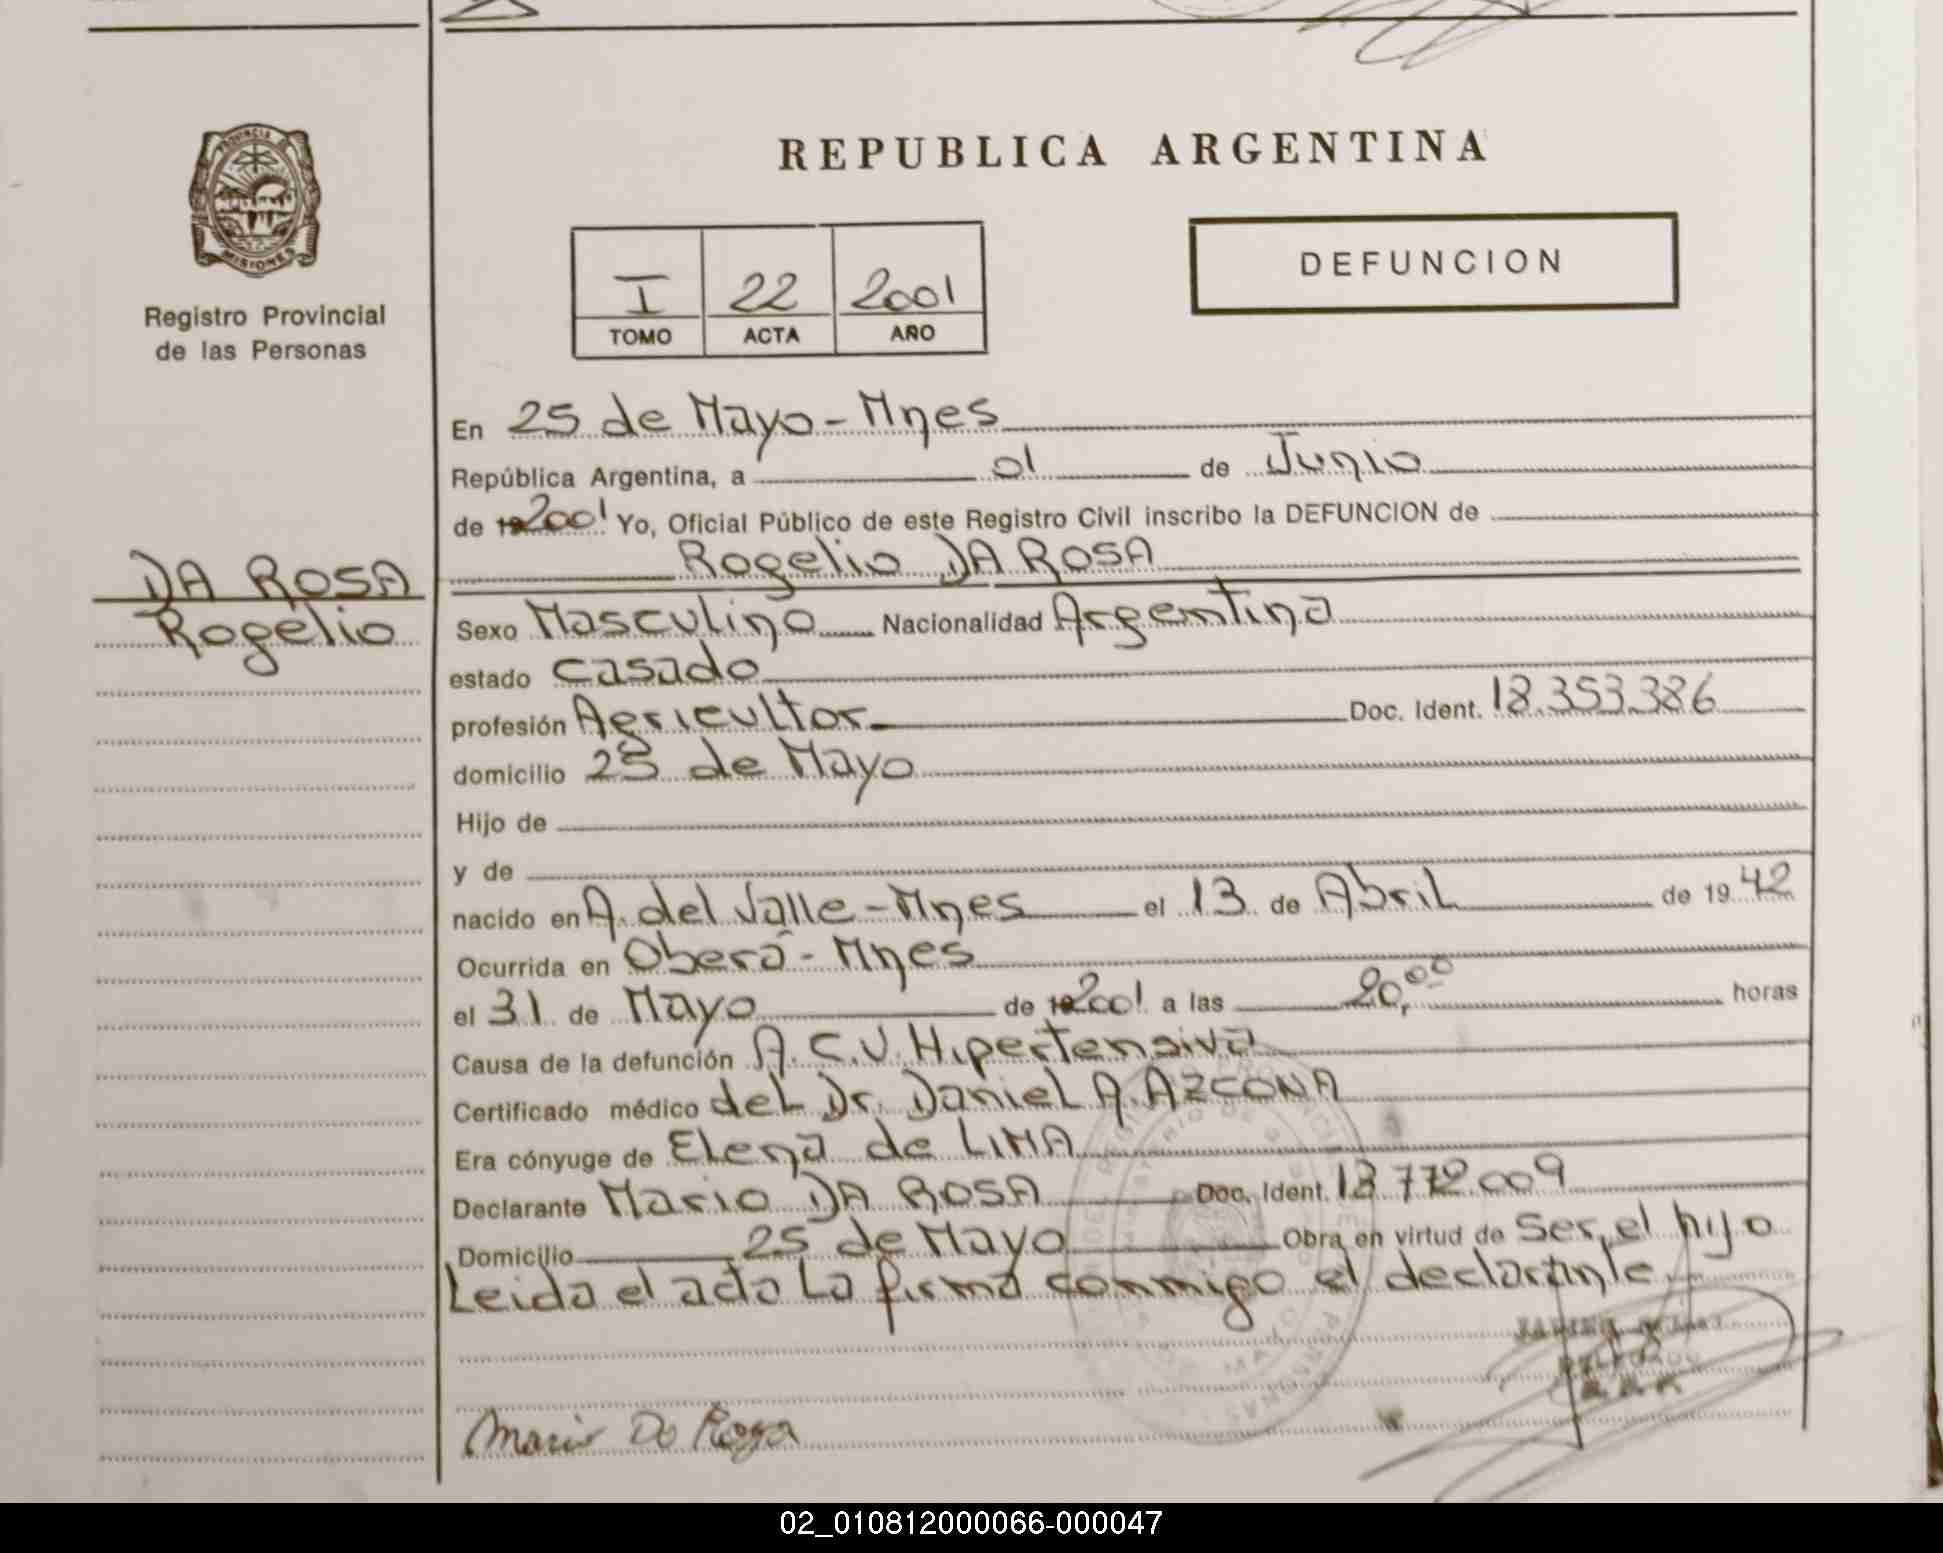 REPUBLICA ARGENTINA
PROVINCIA DE
MISIONES
Registro Provincial
de las Personas
DEFUNCION
I 22 2001
TOMO ACTA AÑO
En 25 de Mayo - Mnes
República Argentina, a 01 de Junio
de 19 2001 Yo, Oficial Público de este Registro Civil inscribo la DEFUNCION de
Rogelio DA ROSA
DA ROSA
Rogelio
Sexo Masculino Nacionalidad Argentina
estado casado
profesión Agricultor Doc. Ident. 18.353.386
domicilio 25 de Mayo
Hijo de
y de
nacido en A. del Valle - Mnes el 13 de Abril de 19 42
Ocurrida en Oberá - Mnes
el 31 de Mayo de 19 2001 a las 20,00 horas
Causa de la defunción A.C.V. Hipertensiva
Certificado médico del Dr. Daniel A. AZCONA
Era cónyuge de Elena de LIMA
Declarante Mario DA ROSA Doc. Ident. 18 772.009
Domicilio 25 de Mayo Obra en virtud de Ser el hijo
Leida el acta La firma conmigo el declarante
Mario Da Rosa
02_010812000066-000047